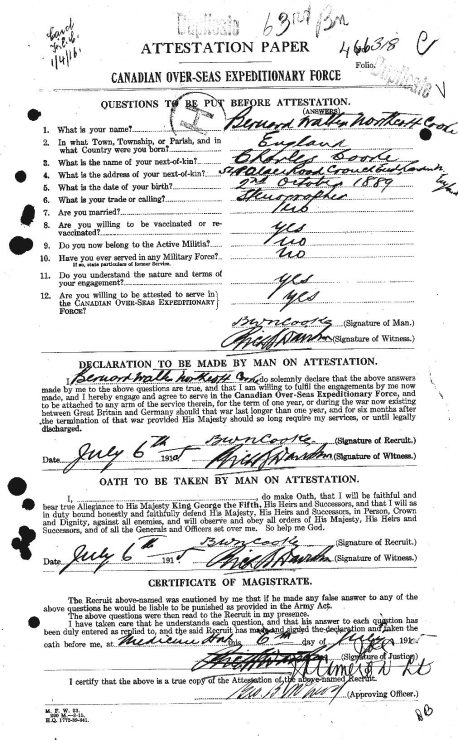 Duplicate
63rd Bn
Card
1/4/16.
ATTESTATION PAPER
466318
C
Folio.
Duplicate
CANADIAN OVER-SEAS EXPEDITIONARY FORCE
QUESTIONS TO BE PUT BEFORE ATTESTATION.
(ANSWERS)
1. What is your name? Bernard Walter Northcott Cooke
2. In what Town, Township, or Parish, and in what Country were you born? England
3. What is the name of your next-of-kin? Charles Cooke
4. What is the address of your next-of-kin? Road
5. What is the date of your birth? 2nd October 1889
6. What is your trade or calling? Stenographer
7. Are you married? No
8. Are you willing to be vaccinated or re-vaccinated? yes
9. Do you now belong to the Active Militia? no
10. Have you ever served in any Military Force? no
If so, state particulars of former Service.
11. Do you understand the nature and terms of your engagement? yes
12. Are you willing to be attested to serve in the CANADIAN OVER-SEAS EXPEDITIONARY FORCE? yes
BWNCooke (Signature of Man.)
(Signature of Witness.)
DECLARATION TO BE MADE BY MAN ON ATTESTATION.
I, Bernard Walter Northcott Cooke do solemnly declare that the above answers
made by me to the above questions are true, and that I am willing to fulfil the engagements by me now
made, and I hereby engage and agree to serve in the Canadian Over-Seas Expeditionary Force, and
to be attached to any arm of the service therein, for the term of one year, or during the war now existing
between Great Britain and Germany should that war last longer than one year, and for six months after
the termination of that war provided His Majesty should so long require my services, or until legally
discharged.
BWNCooke (Signature of Recruit.)
Date July 6th 1915 (Signature of Witness.)
OATH TO BE TAKEN BY MAN ON ATTESTATION.
I, do make Oath, that I will be faithful and
bear true Allegiance to His Majesty King George the Fifth, His Heirs and Successors, and that I will as
in duty bound honestly and faithfully defend His Majesty, His Heirs and Successors, in Person, Crown
and Dignity, against all enemies, and will observe and obey all orders of His Majesty, His Heirs and
Successors, and of all the Generals and Officers set over me. So help me God.
BWNCooke (Signature of Recruit.)
Date July 6th 1915 (Signature of Witness.)
CERTIFICATE OF MAGISTRATE.
The Recruit above-named was cautioned by me that if he made any false answer to any of the
above questions he would be liable to be punished as provided in the Army Act.
The above questions were then read to the Recruit in my presence.
I have taken care that he understands each question, and that his answer to each question has
been duly entered as replied to, and the said Recruit has made and signed the declaration and taken the
oath before me, at Medicine Hat this 6th day of July 1915
(Signature of Justice)
Lt
I certify that the above is a true copy of the Attestation of the above-named Recruit.
(Approving Officer.)
M. F. W. 23.
H.Q. 1772-39-841.